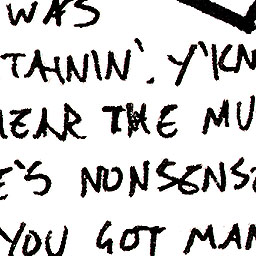 WAS
TAININ'. Y'KN
EAR THE MU
E'S NONSENS
YOU GOT MAN